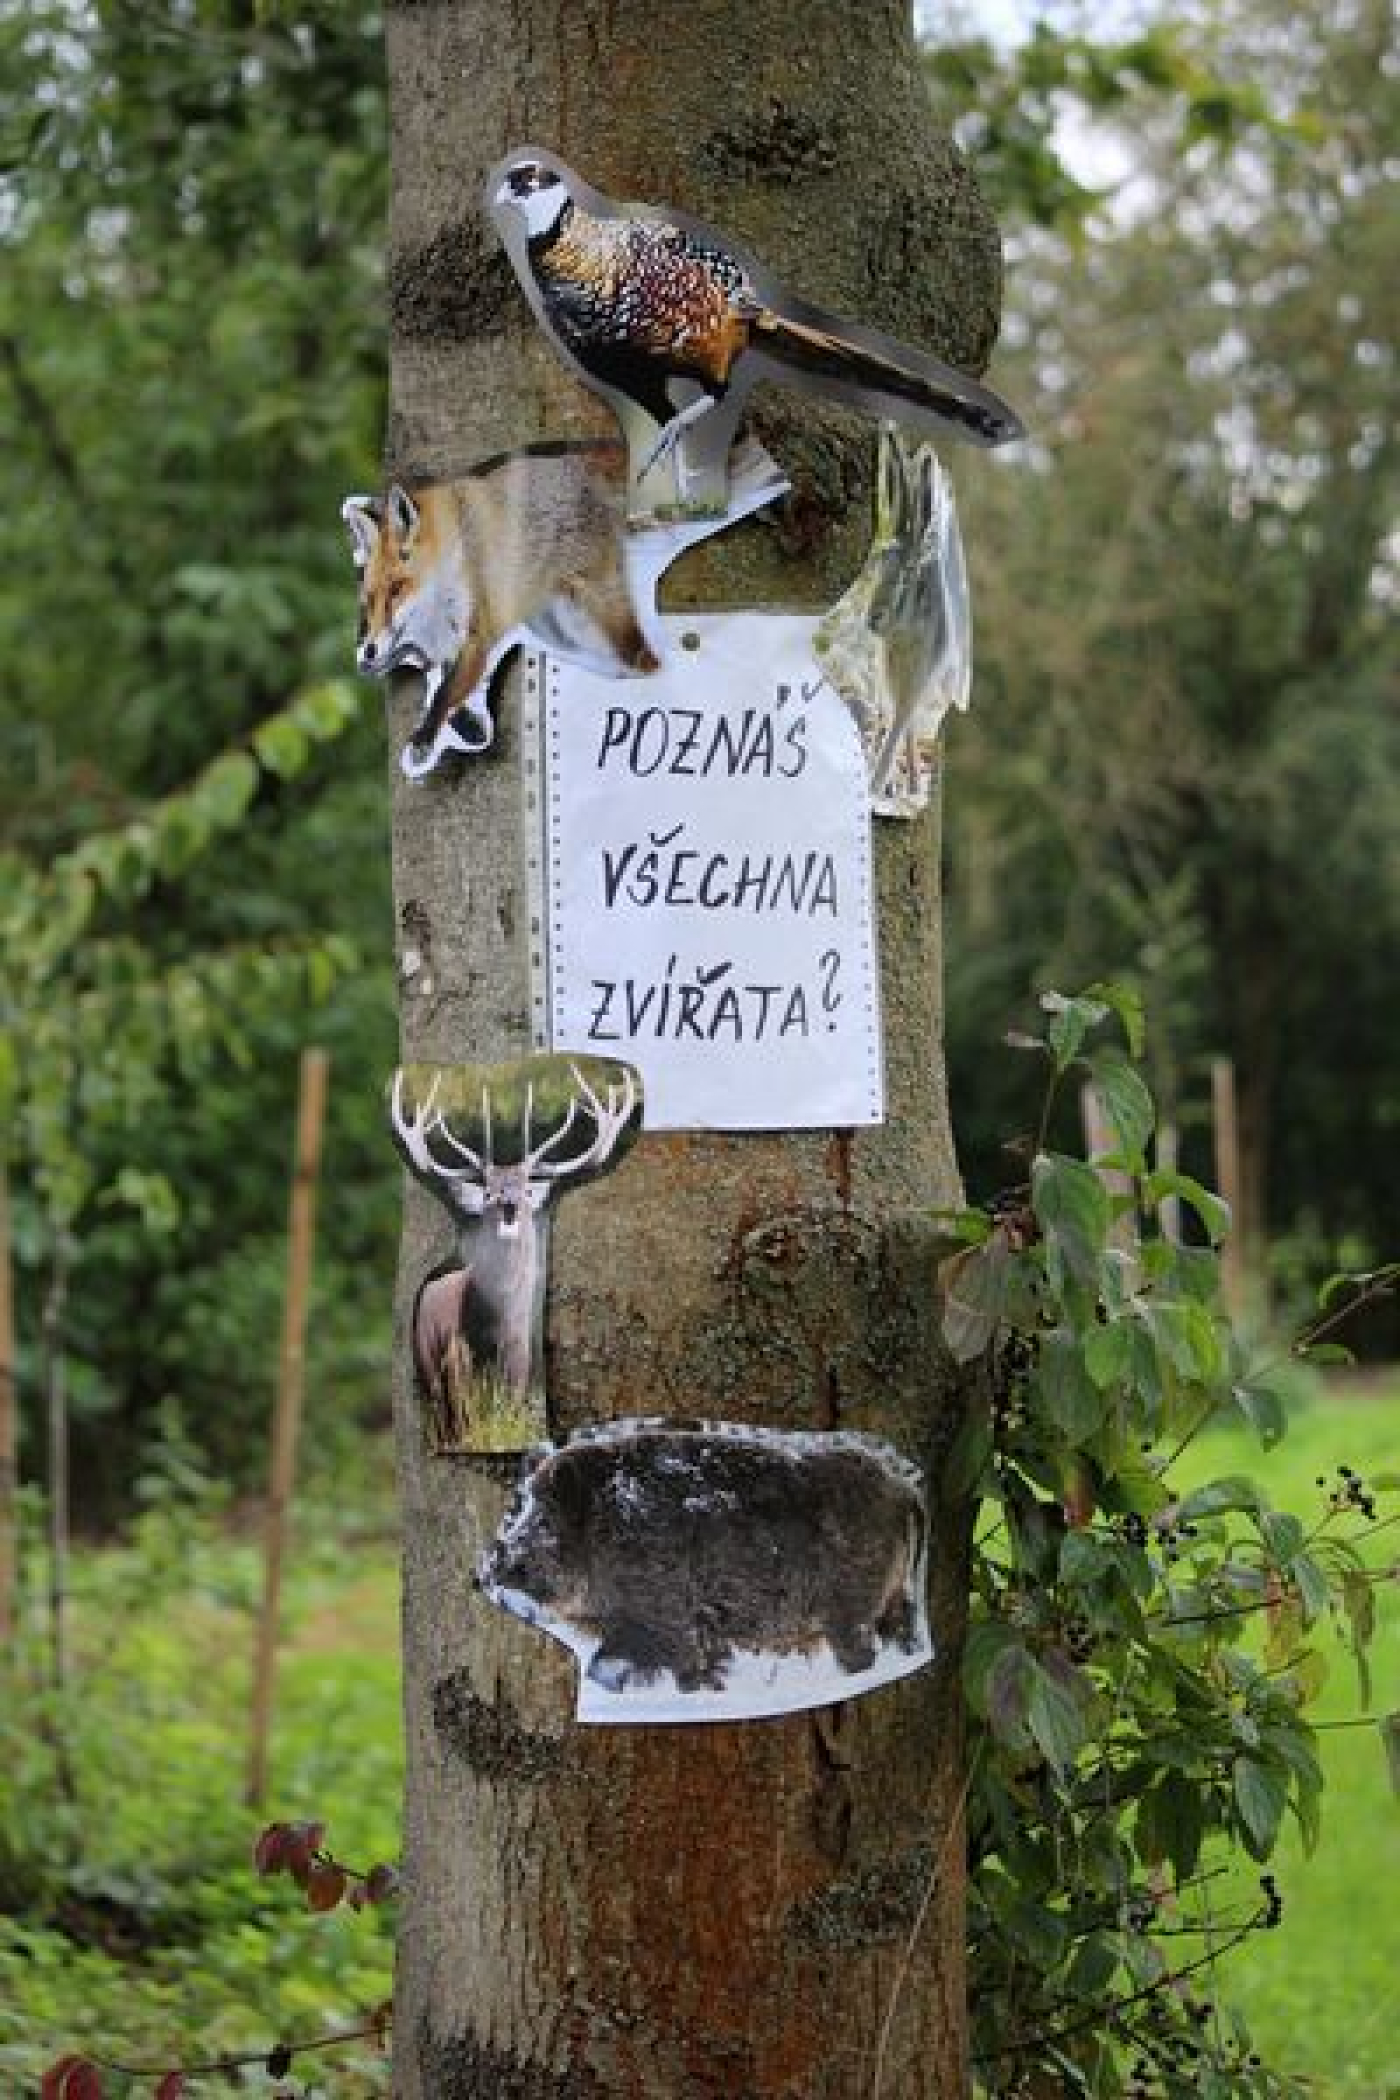 POZNÁŠ
VŠECHNA
ZVÍŘATA?